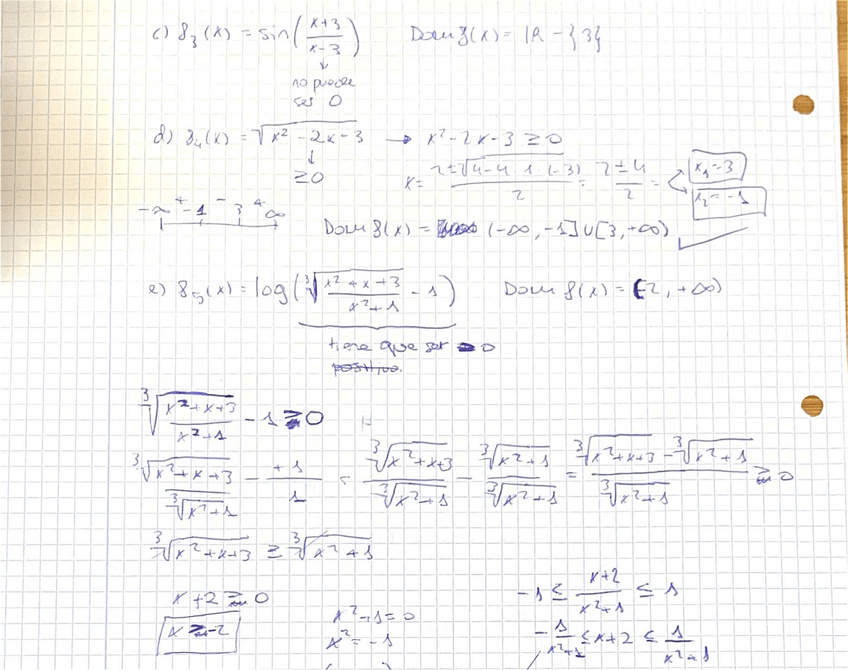 c) f₃(x) = sin((x+3)/(x-3))    Dom f(x) = ℝ - {3}
↓
no puede
ser 0
d) f₄(x) = √(x² - 2x - 3) → x² - 2x - 3 ≥ 0
↓
≥0
x = (2 ± √(4 - 4·1·(-3)))/2 = (2 ± 4)/2 = x₁ = 3
x₂ = -1
-∞ + -1 - 3 + ∞
Dom f(x) = (-∞, -1] ∪ [3, +∞)
e) f₅(x) = log(∛((x²+x+3)/(x²+1)) - 1)    Dom f(x) = (-2, +∞)
tiene que ser > 0
positivo.
∛((x²+x+3)/(x²+1)) - 1 > 0
∛(x²+x+3)/∛(x²+1) - (+1)/1 = ∛(x²+x+3)/∛(x²+1) - ∛(x²+1)/∛(x²+1) = (∛(x²+x+3) - ∛(x²+1))/∛(x²+1) > 0
∛(x²+x+3) ≥ ∛(x²+1)
x + 2 > 0
x > -2
x² + 1 = 0
x² = -1
-1 ≤ (x+2)/(x²+1) ≤ 1
-1/(x²+1) ≤ x+2 ≤ 1/(x²+1)